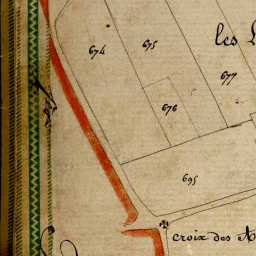 les
674
675
677
676
695
croix des